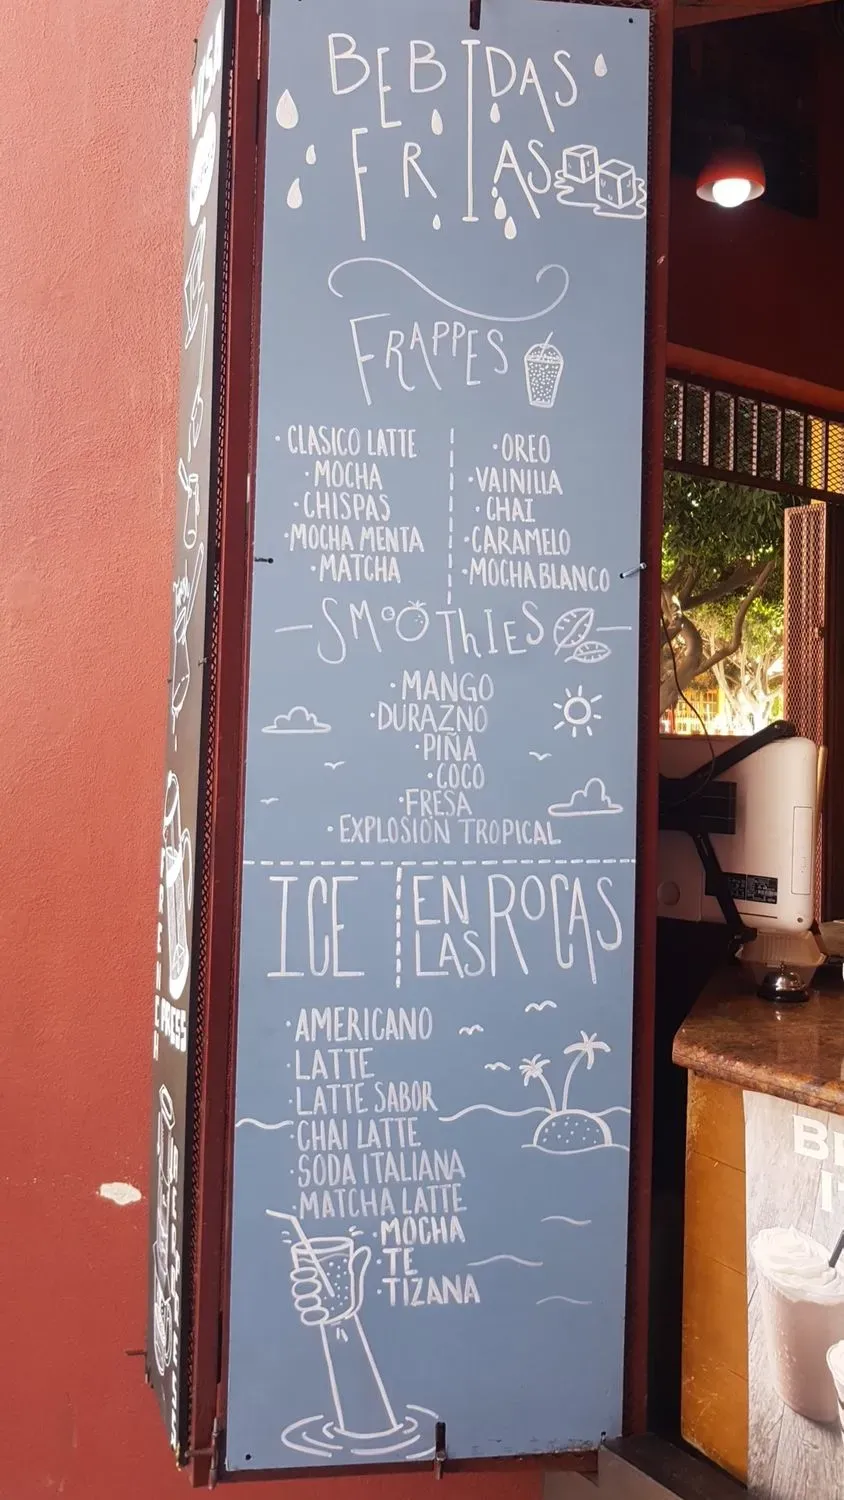 BEBIDAS
FRIAS
FRAPPES
· CLASICO LATTE
· MOCHA
· CHISPAS
· MOCHA MENTA
· MATCHA
· OREO
· VAINILLA
· CHAI
· CARAMELO
· MOCHA BLANCO
SMOOTHIES
· MANGO
· DURAZNO
· PIÑA
· COCO
· FRESA
· EXPLOSIÓN TROPICAL
ICE
EN
LAS ROCAS
· AMERICANO
· LATTE
· LATTE SABOR
· CHAI LATTE
· SODA ITALIANA
· MATCHA LATTE
· MOCHA
· TE
· TIZANA
VISA
PRESS